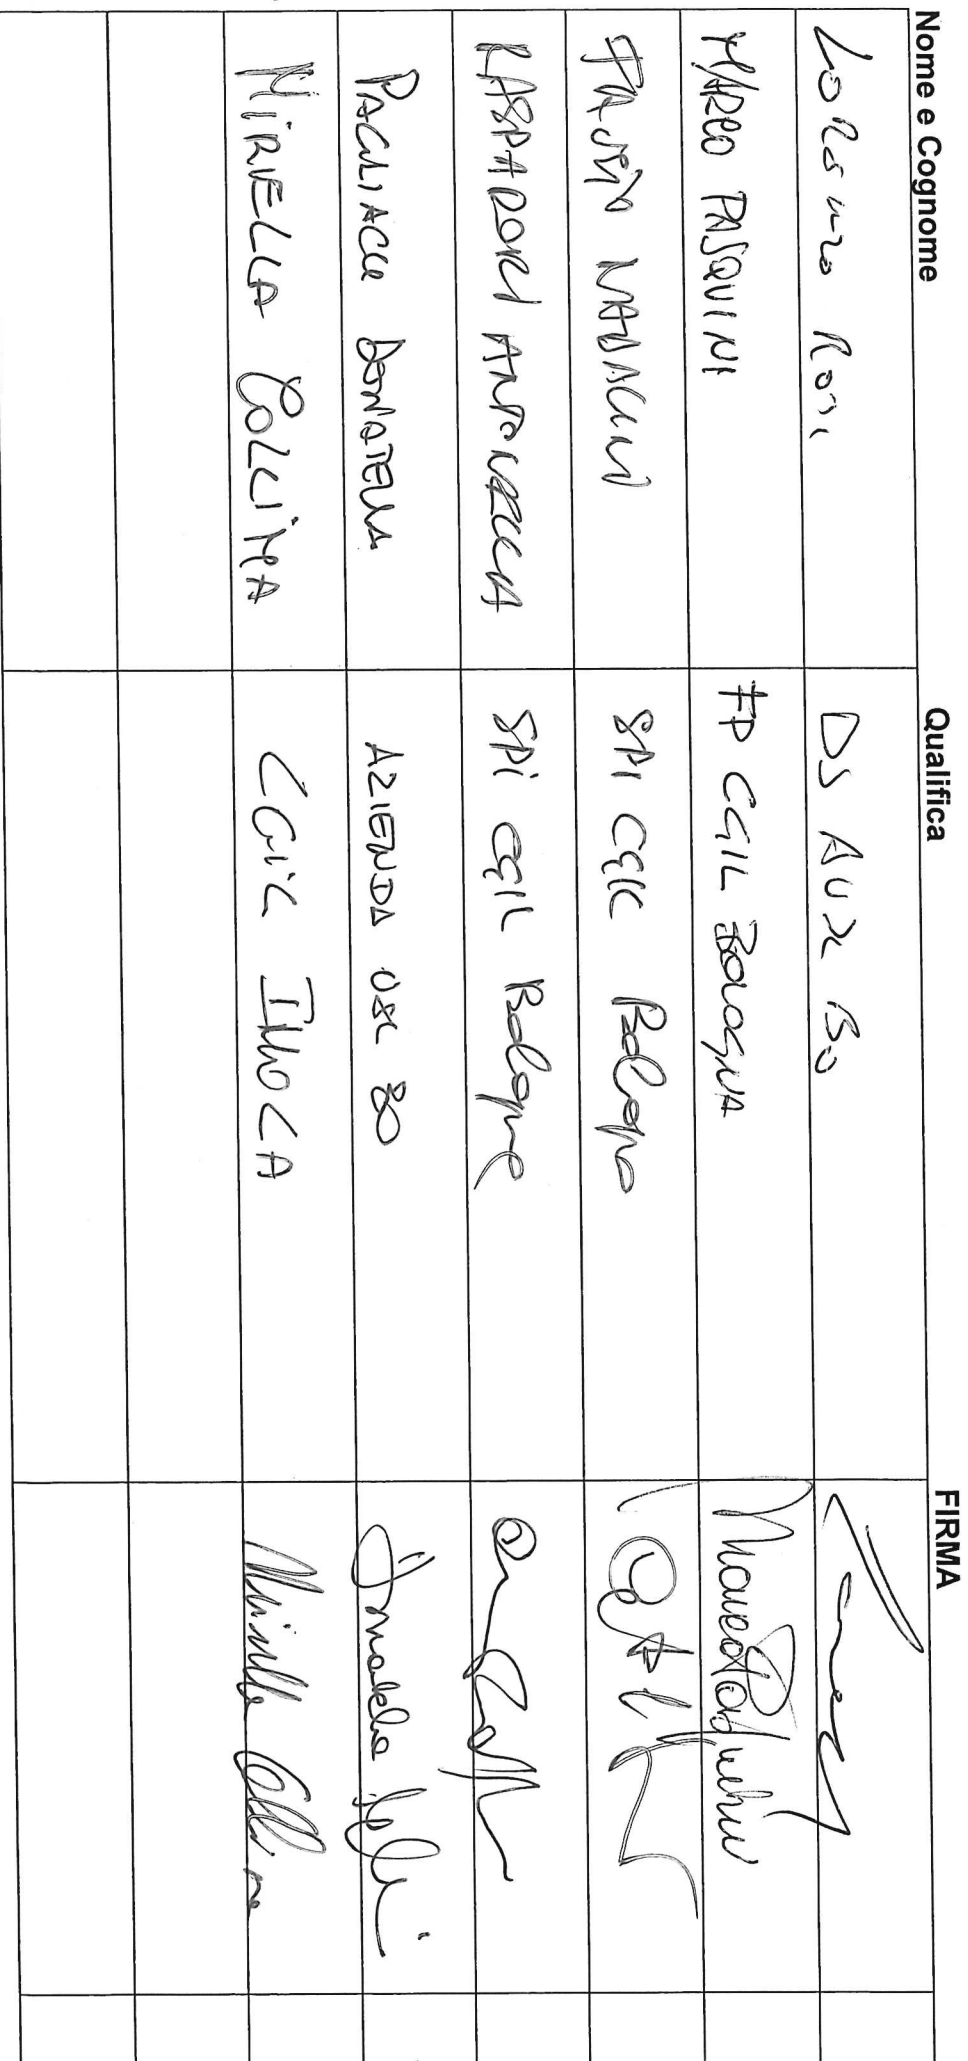 Nome e Cognome Qualifica FIRMA
Lorenzo Rossi DS AUSL Bo
MARCO PASQUINI FP CGIL BOLOGNA Marco Pasquini
FAUSTO NADALINI SPI CGIL Bologna
GASPARORI ANTONELLA SPI CGIL Bologna
PAGLIACCI DONATELLA AZIENDA USL BO Donatella
MIRELLA COLLINA CGIL IMOLA Mirella Collina